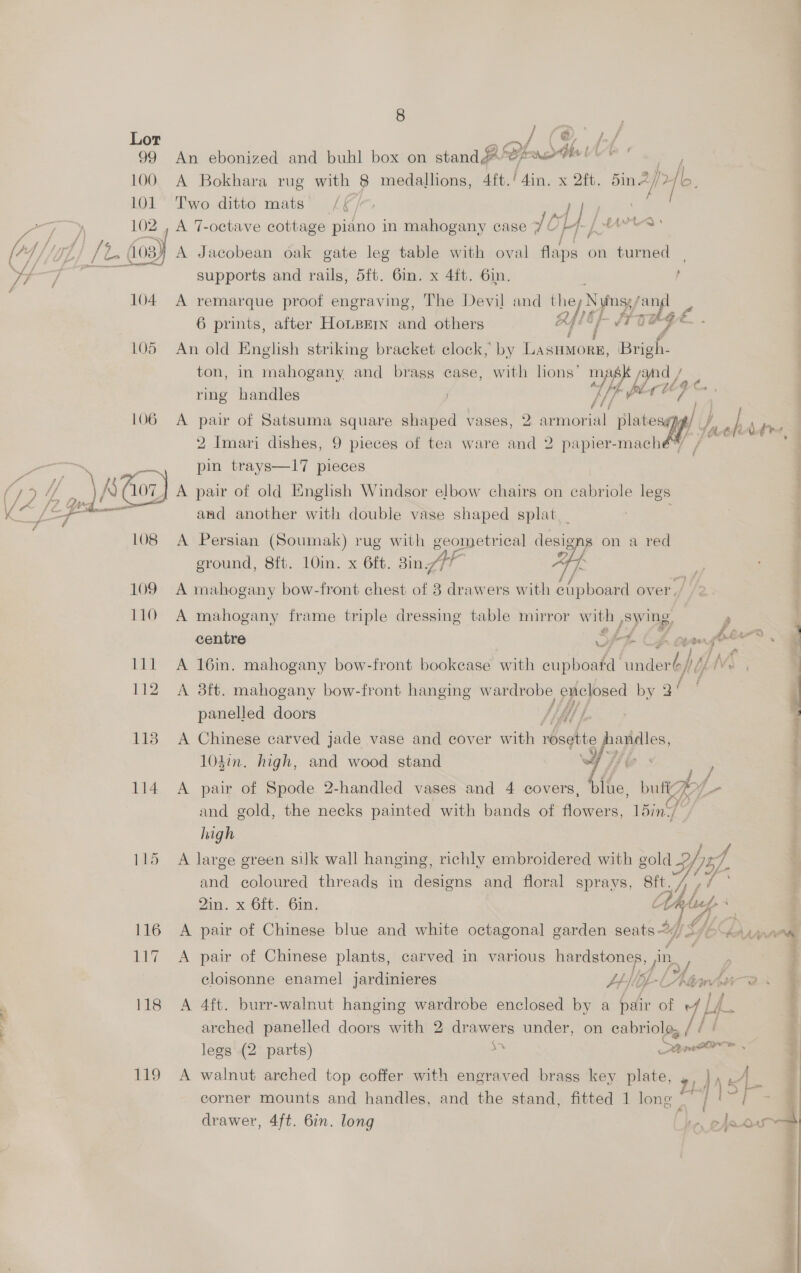 8
Lot
99 An ebonized and buhl box on stand
100 A Bokhara rug with 8 medallions, 4ft. 4in. x 2ft. 5in.
101 Two ditto mats
102 A 7-octave cottage piano in mahogany case
103 A Jacobean oak gate leg table with oval flaps on turned
supports and rails, 5ft. 6in. x 4ft. 6in.
104 A remarque proof engraving, The Devil and the Nyns, and
6 prints, after HOLBEIN and others
105 An old English striking bracket clock, by LASHMORE, Brigh-
ton, in mahogany and brass case, with lions' mask and
ring handles
106 A pair of Satsuma square shaped vases, 2 armorial plates,
2 Imari dishes, 9 pieces of tea ware and 2 papier-maché
pin trays—17 pieces
107 A pair of old English Windsor elbow chairs on cabriole legs
and another with double vase shaped splat
108 A Persian (Soumak) rug with geometrical designs on a red
ground, 8ft. 10in. x 6ft. 3in.
109 A mahogany bow-front chest of 3 drawers with cupboard over
110 A mahogany frame triple dressing table mirror with swing
centre
111 A 16in. mahogany bow-front bookcase with cupboard under
112 A 3ft. mahogany bow-front hanging wardrobe enclosed by 2
panelled doors
113 A Chinese carved jade vase and cover with rosette handles,
10½in. high, and wood stand
114 A pair of Spode 2-handled vases and 4 covers, blue, buff
and gold, the necks painted with bands of flowers, 15in.
high
115 A large green silk wall hanging, richly embroidered with gold
and coloured threads in designs and floral sprays, 8ft.
2in. x 6ft. 6in.
116 A pair of Chinese blue and white octagonal garden seats
117 A pair of Chinese plants, carved in various hardstones, in
cloisonne enamel jardinieres
118 A 4ft. burr-walnut hanging wardrobe enclosed by a pair of
arched panelled doors with 2 drawers under, on cabriole
legs (2 parts)
119 A walnut arched top coffer with engraved brass key plate,
corner mounts and handles, and the stand, fitted 1 long
drawer, 4ft. 6in. long